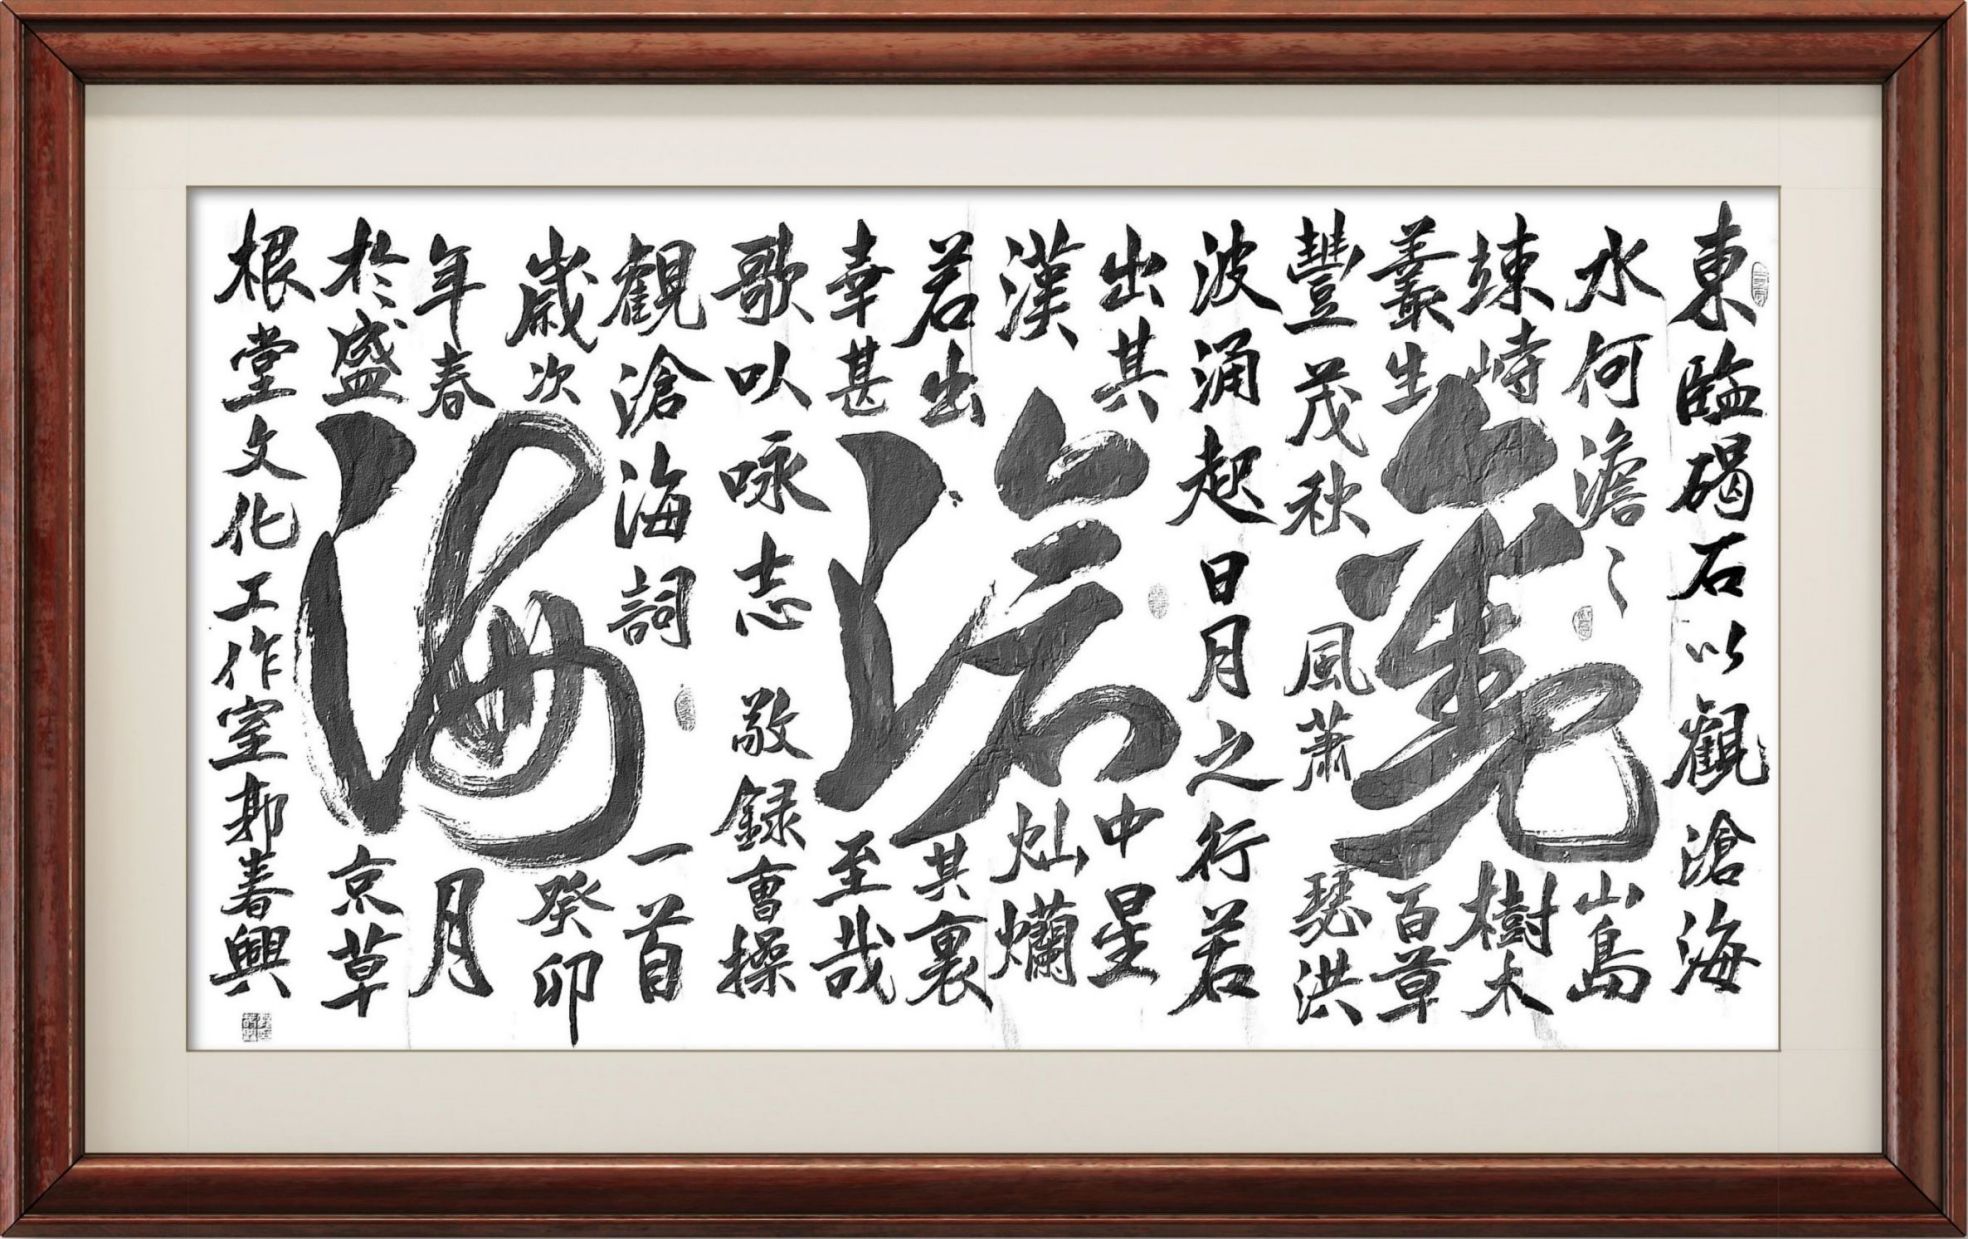 觀滄海
東臨碣石以觀滄海
水何澹〻山島
竦峙樹木
叢生百草
豐茂秋風蕭瑟洪
波涌起日月之行若
出其中星
漢灿爛
若出其裏
幸甚至哉
歌以咏志敬録曹操
觀滄海詞一首
歲次癸卯
年春月
於盛京草
根堂文化工作室郭春興